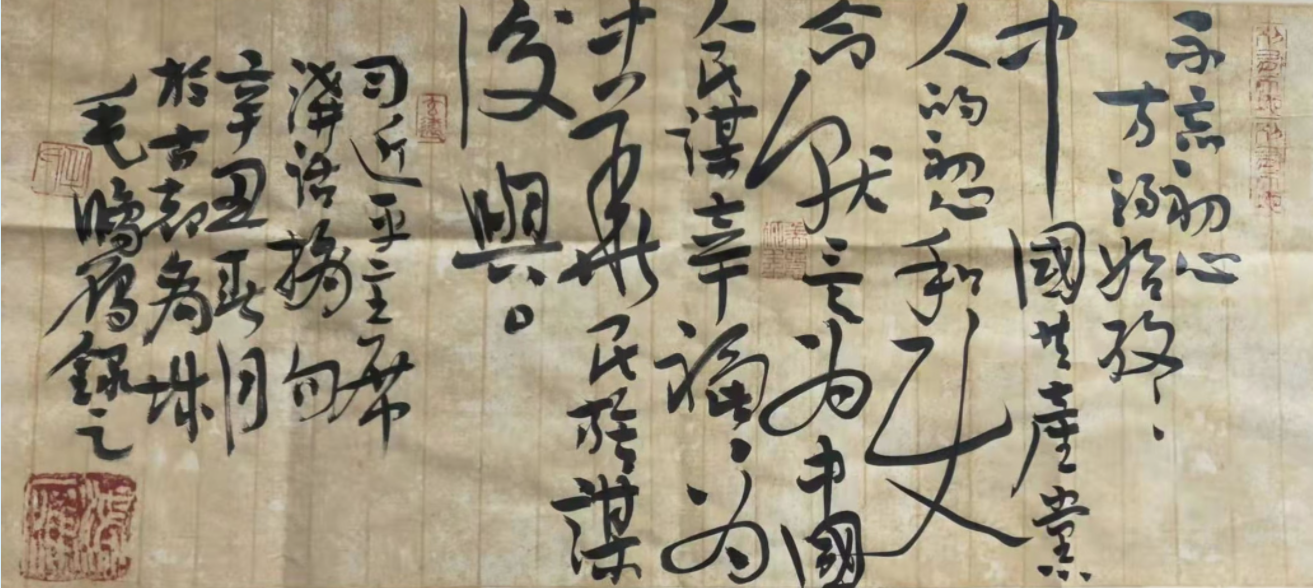 不忘初心
方得始终、
中國共產黨
人的初心和使
命就是为中國
人民謀幸福、为
中華民族謀
復興。
习近平主席
講话摘句
辛丑春月
於古都城
毛錄之